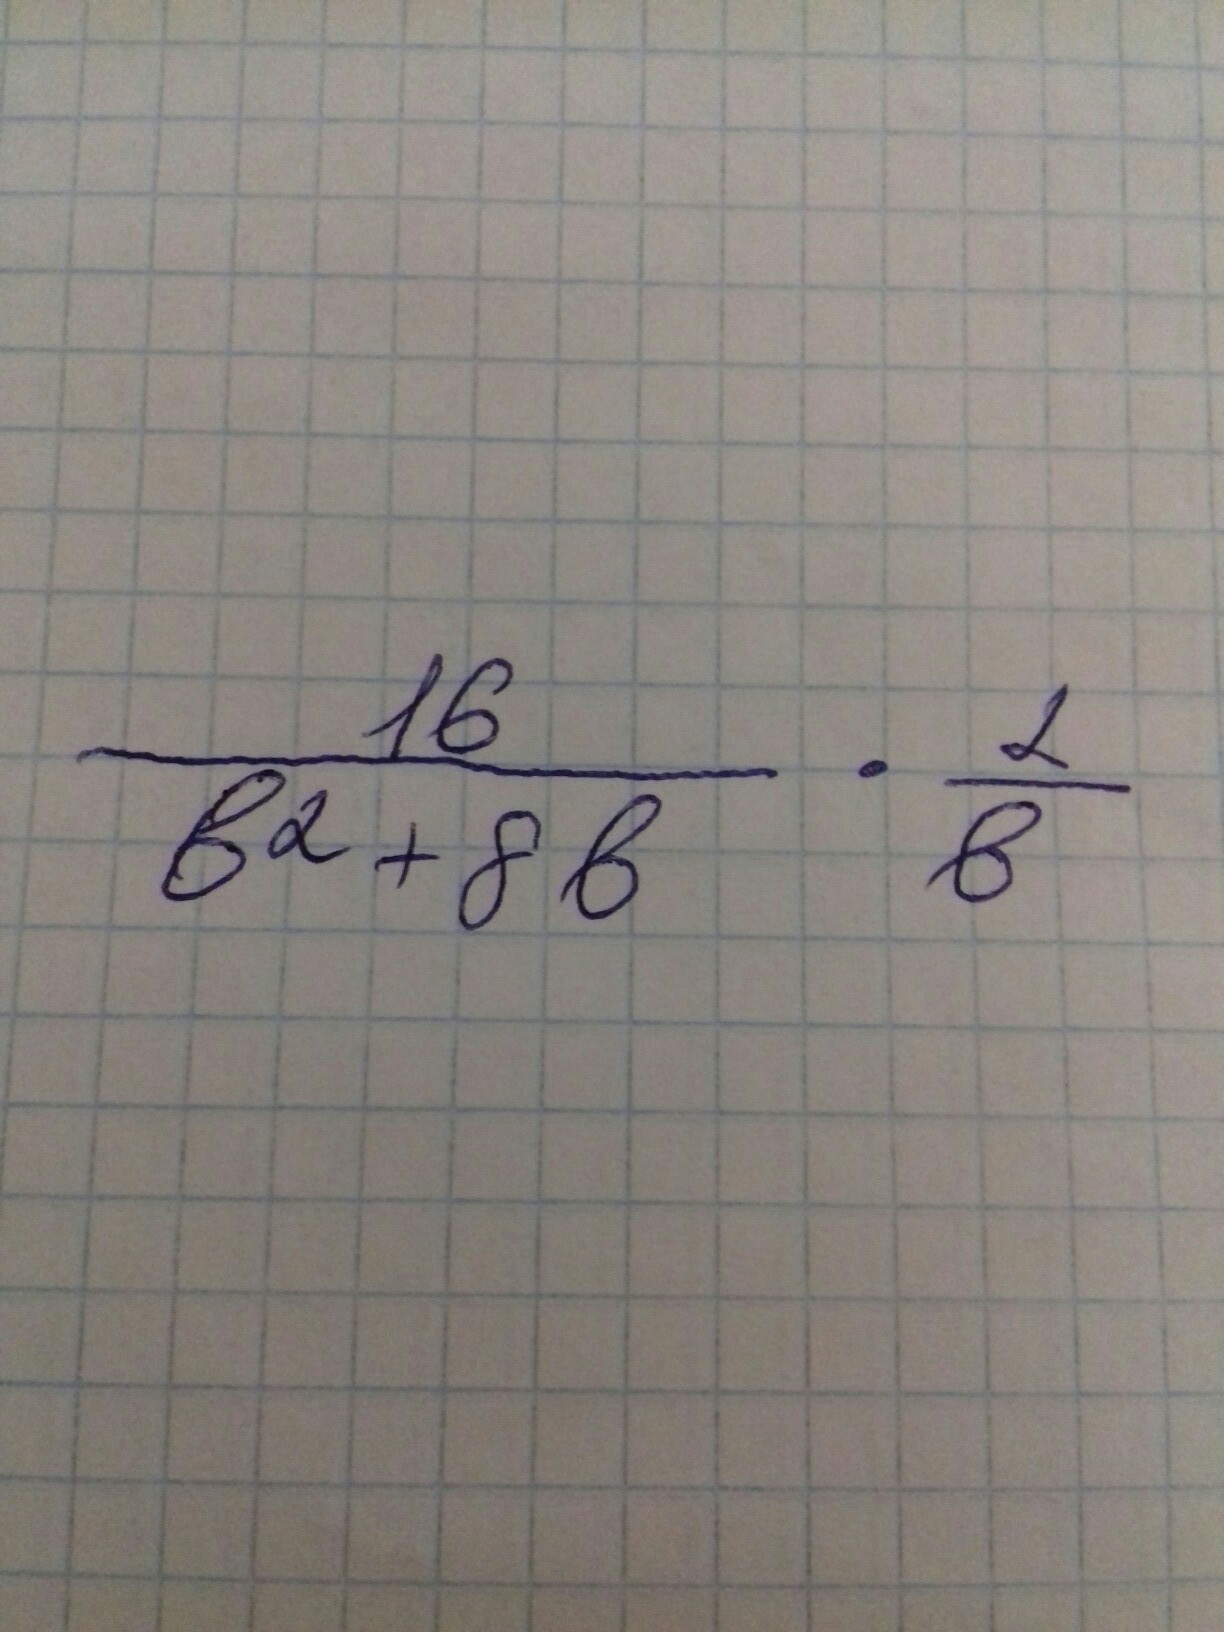 16/(b² + 8b) · 2/b